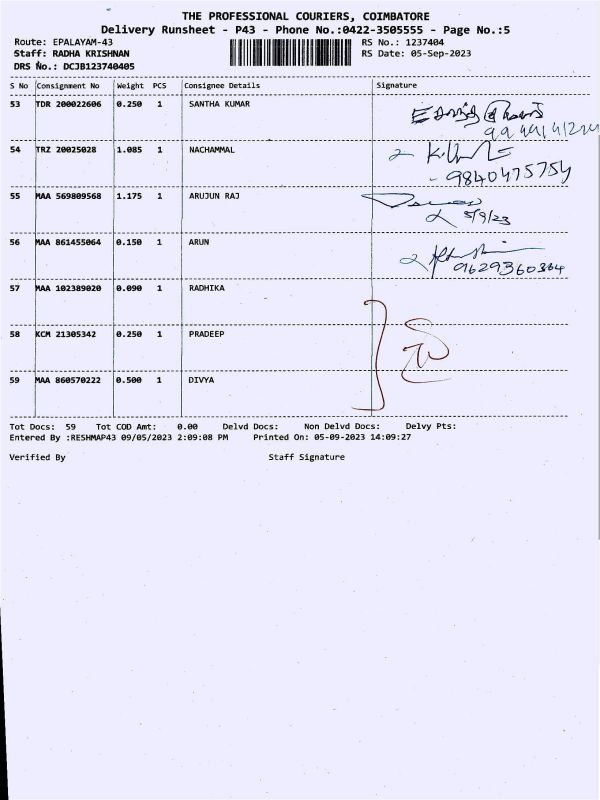 THE PROFESSIONAL COURIERS, COIMBATORE
Delivery Runsheet - P43 - Phone No.:0422-3505555 - Page No.:5
Route: EPALAYAM-43 RS No.: 1237404
Staff: RADHA KRISHNAN RS Date: 05-Sep-2023
DRS No.: DCJB123740405
S No Consignment No Weight PCS Consignee Details Signature
53 TDR 200022606 0.250 1 SANTHA KUMAR
54 TRZ 20025028 1.085 1 NACHAMMAL
9840475754
55 MAA 569809568 1.175 1 ARUJUN RAJ
5/9/23
56 MAA 861455064 0.150 1 ARUN
9629360364
57 MAA 102389020 0.090 1 RADHIKA
58 KCM 21305342 0.250 1 PRADEEP
59 MAA 860570222 0.500 1 DIVYA
Tot Docs: 59 Tot COD Amt: 0.00 Delvd Docs: Non Delvd Docs: Delvy Pts:
Entered By :RESHMAP43 09/05/2023 2:09:08 PM Printed On: 05-09-2023 14:09:27
Verified By Staff Signature